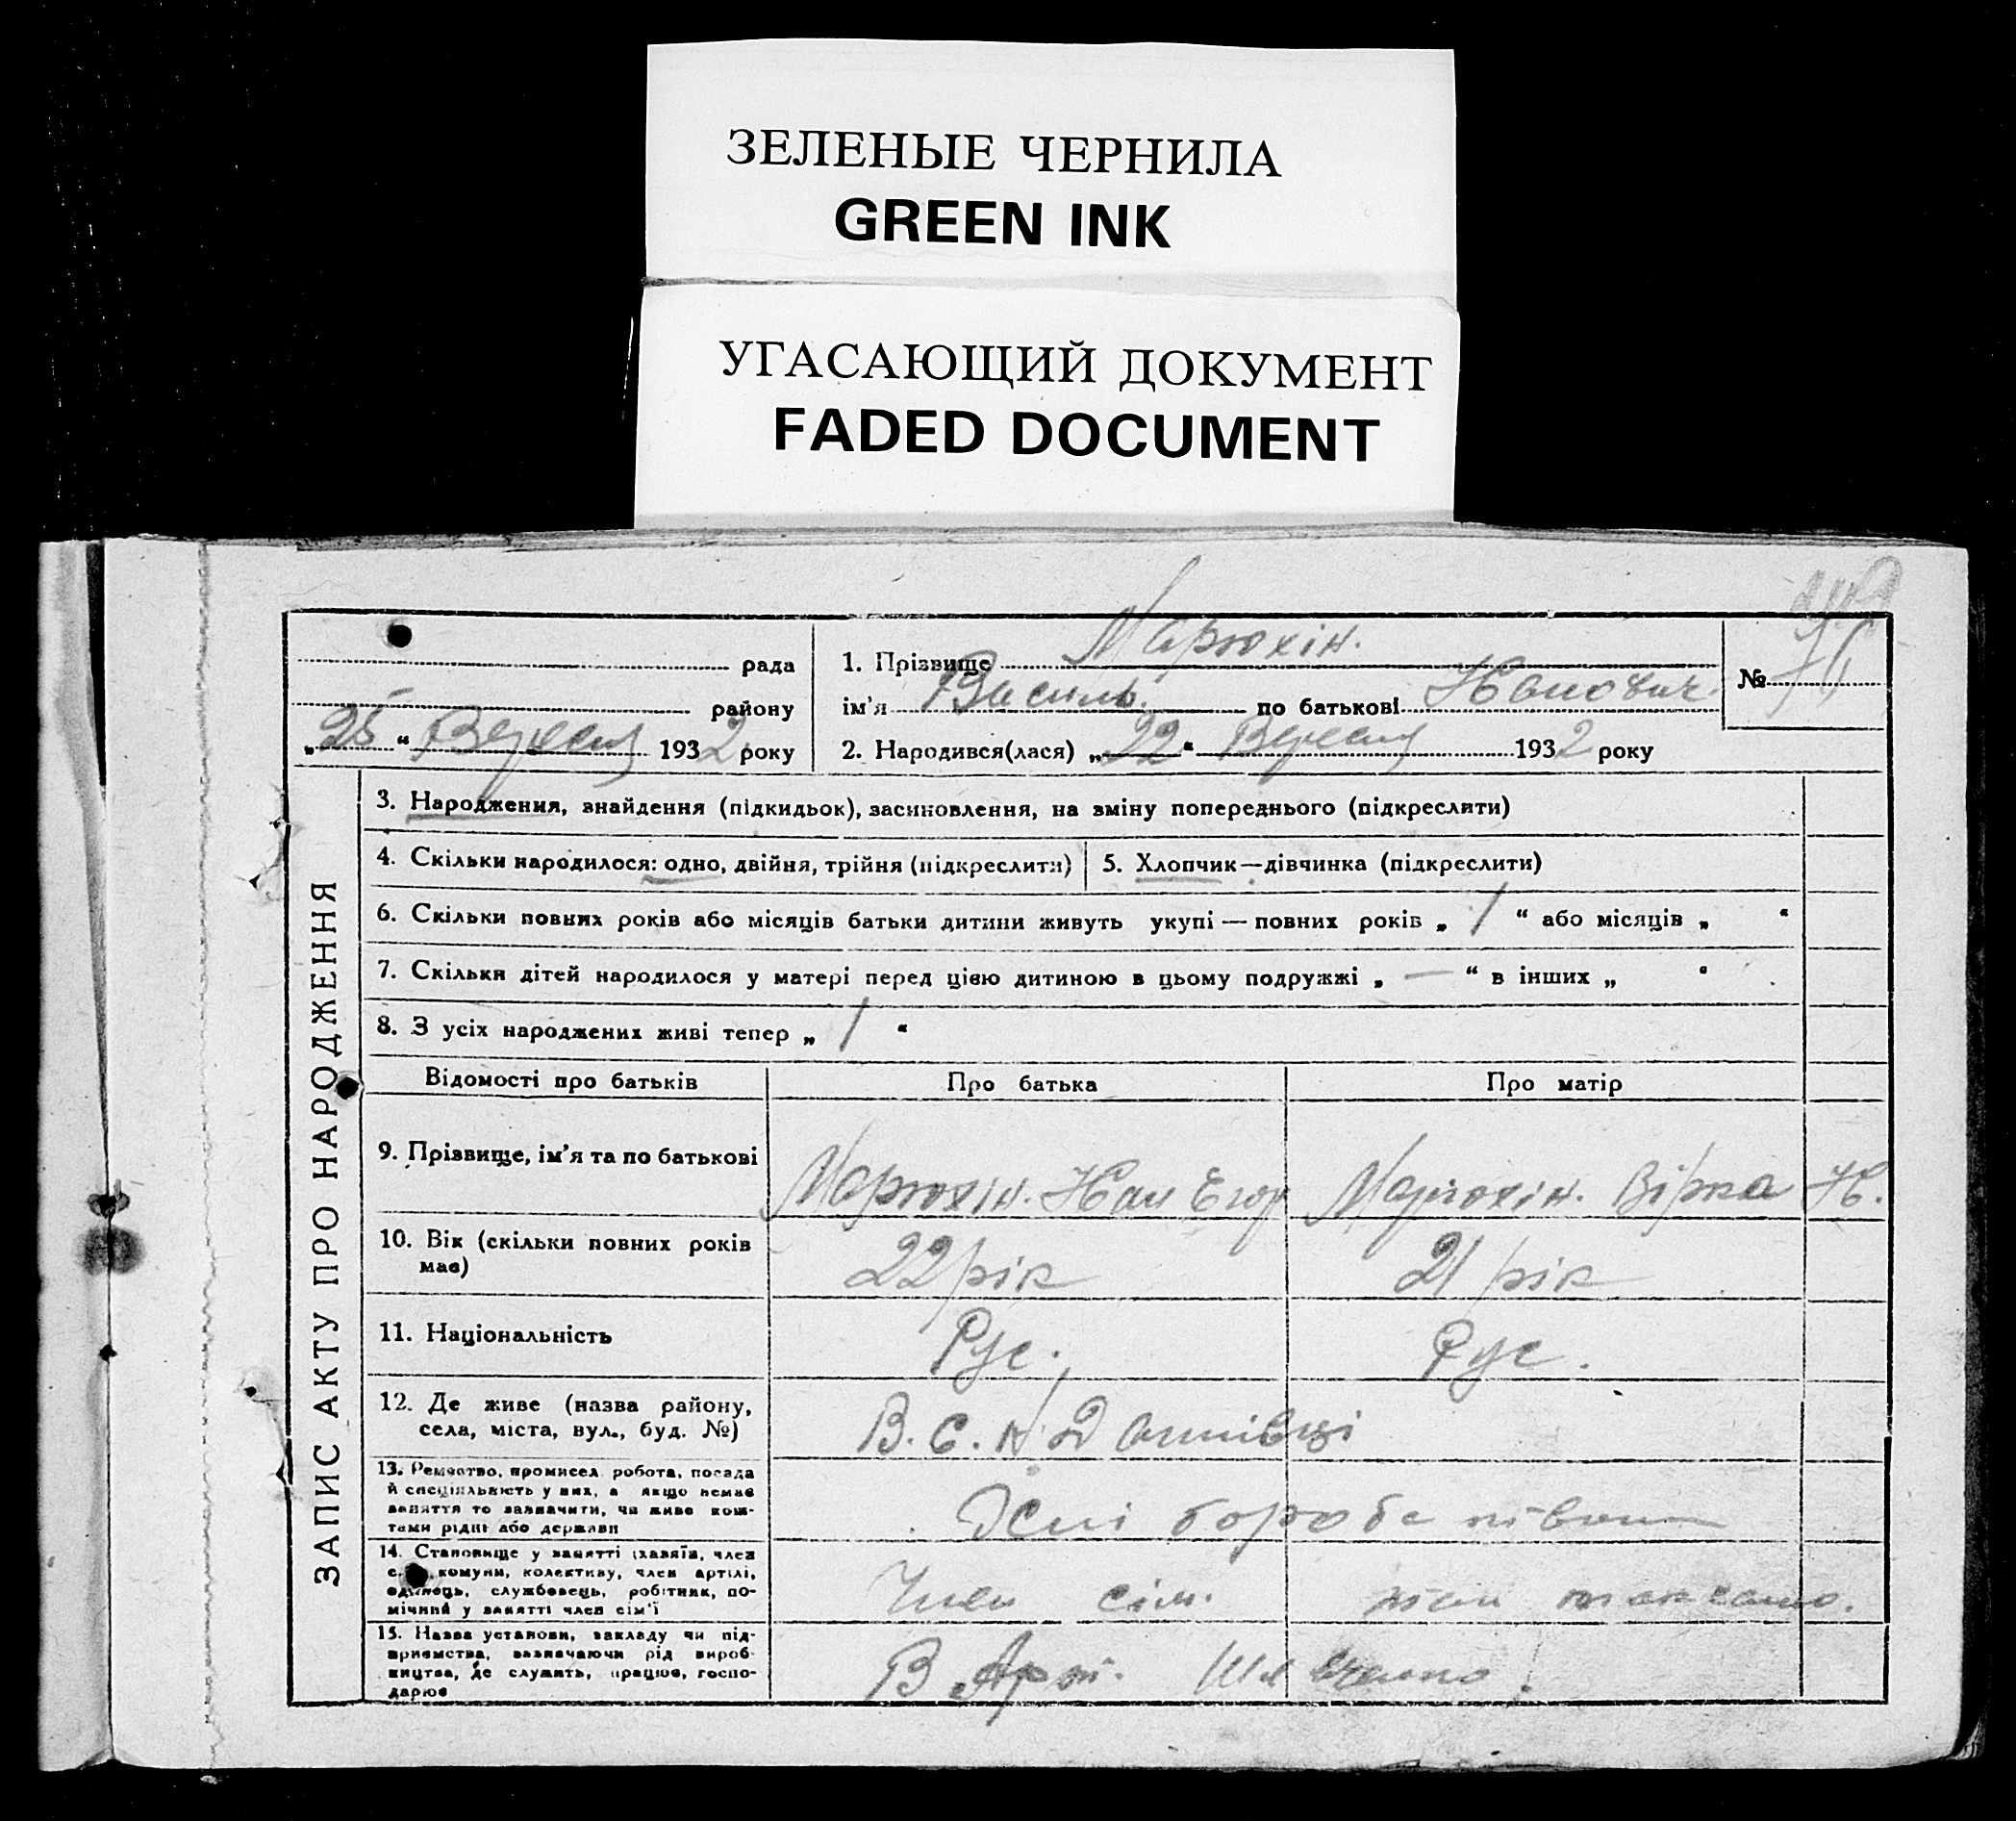 ЗЕЛЕНЫЕ ЧЕРНИЛА
GREEN INK
УГАСАЮЩИЙ ДОКУМЕНТ
FADED DOCUMENT
рада
району
„25“ Вересня 1932 року
1. Прізвище Марюхін.
ім'я Василь. по батькові Іванович.
2. Народився(лася) „22“ Вересня 1932 року
№
ЗАПИС АКТУ ПРО НАРОДЖЕННЯ
3. Народження, знайдення (підкидьок), засиновлення, на зміну попереднього (підкреслити)
4. Скільки народилося: одно, двійня, трійня (підкреслити)
5. Хлопчик—дівчинка (підкреслити)
6. Скільки повних років або місяців батьки дитини живуть укупі — повних років „ 1 “ або місяців „ “
7. Скільки дітей народилося у матері перед цією дитиною в цьому подружжі „ — “ в інших „ “
8. З усіх народжених живі тепер „ 1 “
Відомості про батьків
Про батька
Про матір
9. Прізвище, ім'я та по батькові
Марюхін. Іван Егор
Марюхін. Вірка І.
10. Вік (скільки повних років
має)
22 рік
21 рік
11. Національність
Рус.
Рус.
12. Де живе (назва району,
села, міста, вул., буд. №)
В. С.
13. Ремество, промисел, робота, посада
й спеціяльність у них, а якщо немає
заняття то зазначити, чи живе кош-
тами рідні або держави
14. Становище у занятті (хазяїн, член
комуни, колективу, член артілі,
одинець, службовець, робітник, по-
мічний у занятті член сім'ї
Член сім.
таксамо.
15. Назва установи, закладу чи під-
приємства, зазначаючи рід вироб-
ництва, де служить, працює, госпо-
дарює
В Арт.